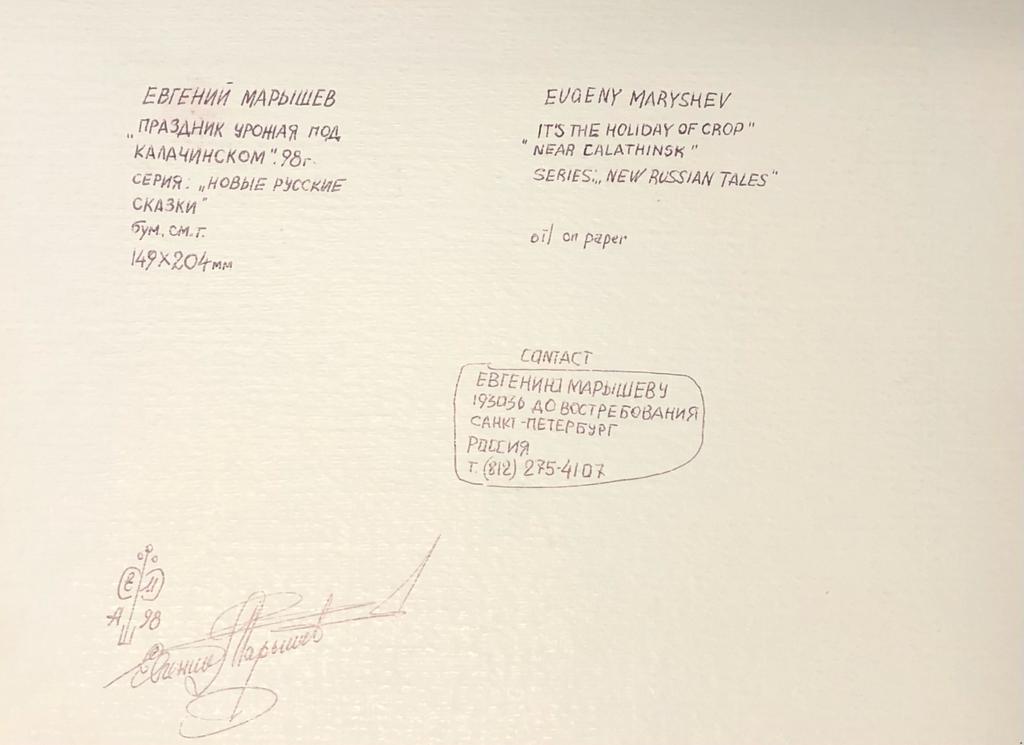 ЕВГЕНИЙ МАРЫШЕВ
„ПРАЗДНИК УРОЖАЯ ПОД
КАЛАЧИНСКОМ". 98г.
СЕРИЯ: „НОВЫЕ РУССКИЕ
СКАЗКИ"
бум. см. т.
149×204мм
EUGENY MARYSHEV
" IT'S THE HOLIDAY OF CROP"
" NEAR CALATHINSK"
SERIES: „NEW RUSSIAN TALES"
oil on paper
CONTACT
ЕВГЕНИЮ МАРЫШЕВУ
193036 ДО ВОСТРЕБОВАНИЯ
САНКТ-ПЕТЕРБУРГ
РОССИЯ
т. (812) 275-4107
А 98
Евгений Марышев